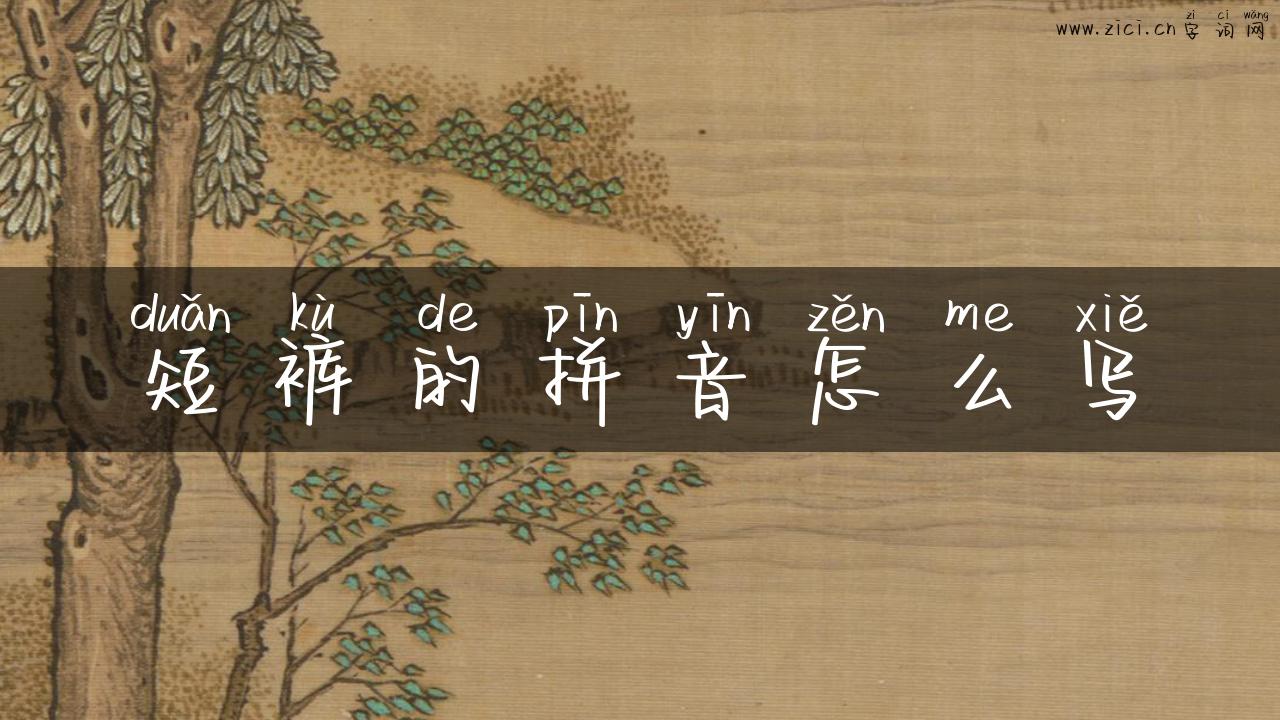 zì cí wǎng
www.zici.cn 字词网
duǎn kù de pīn yīn zěn me xiě
短裤的拼音怎么写